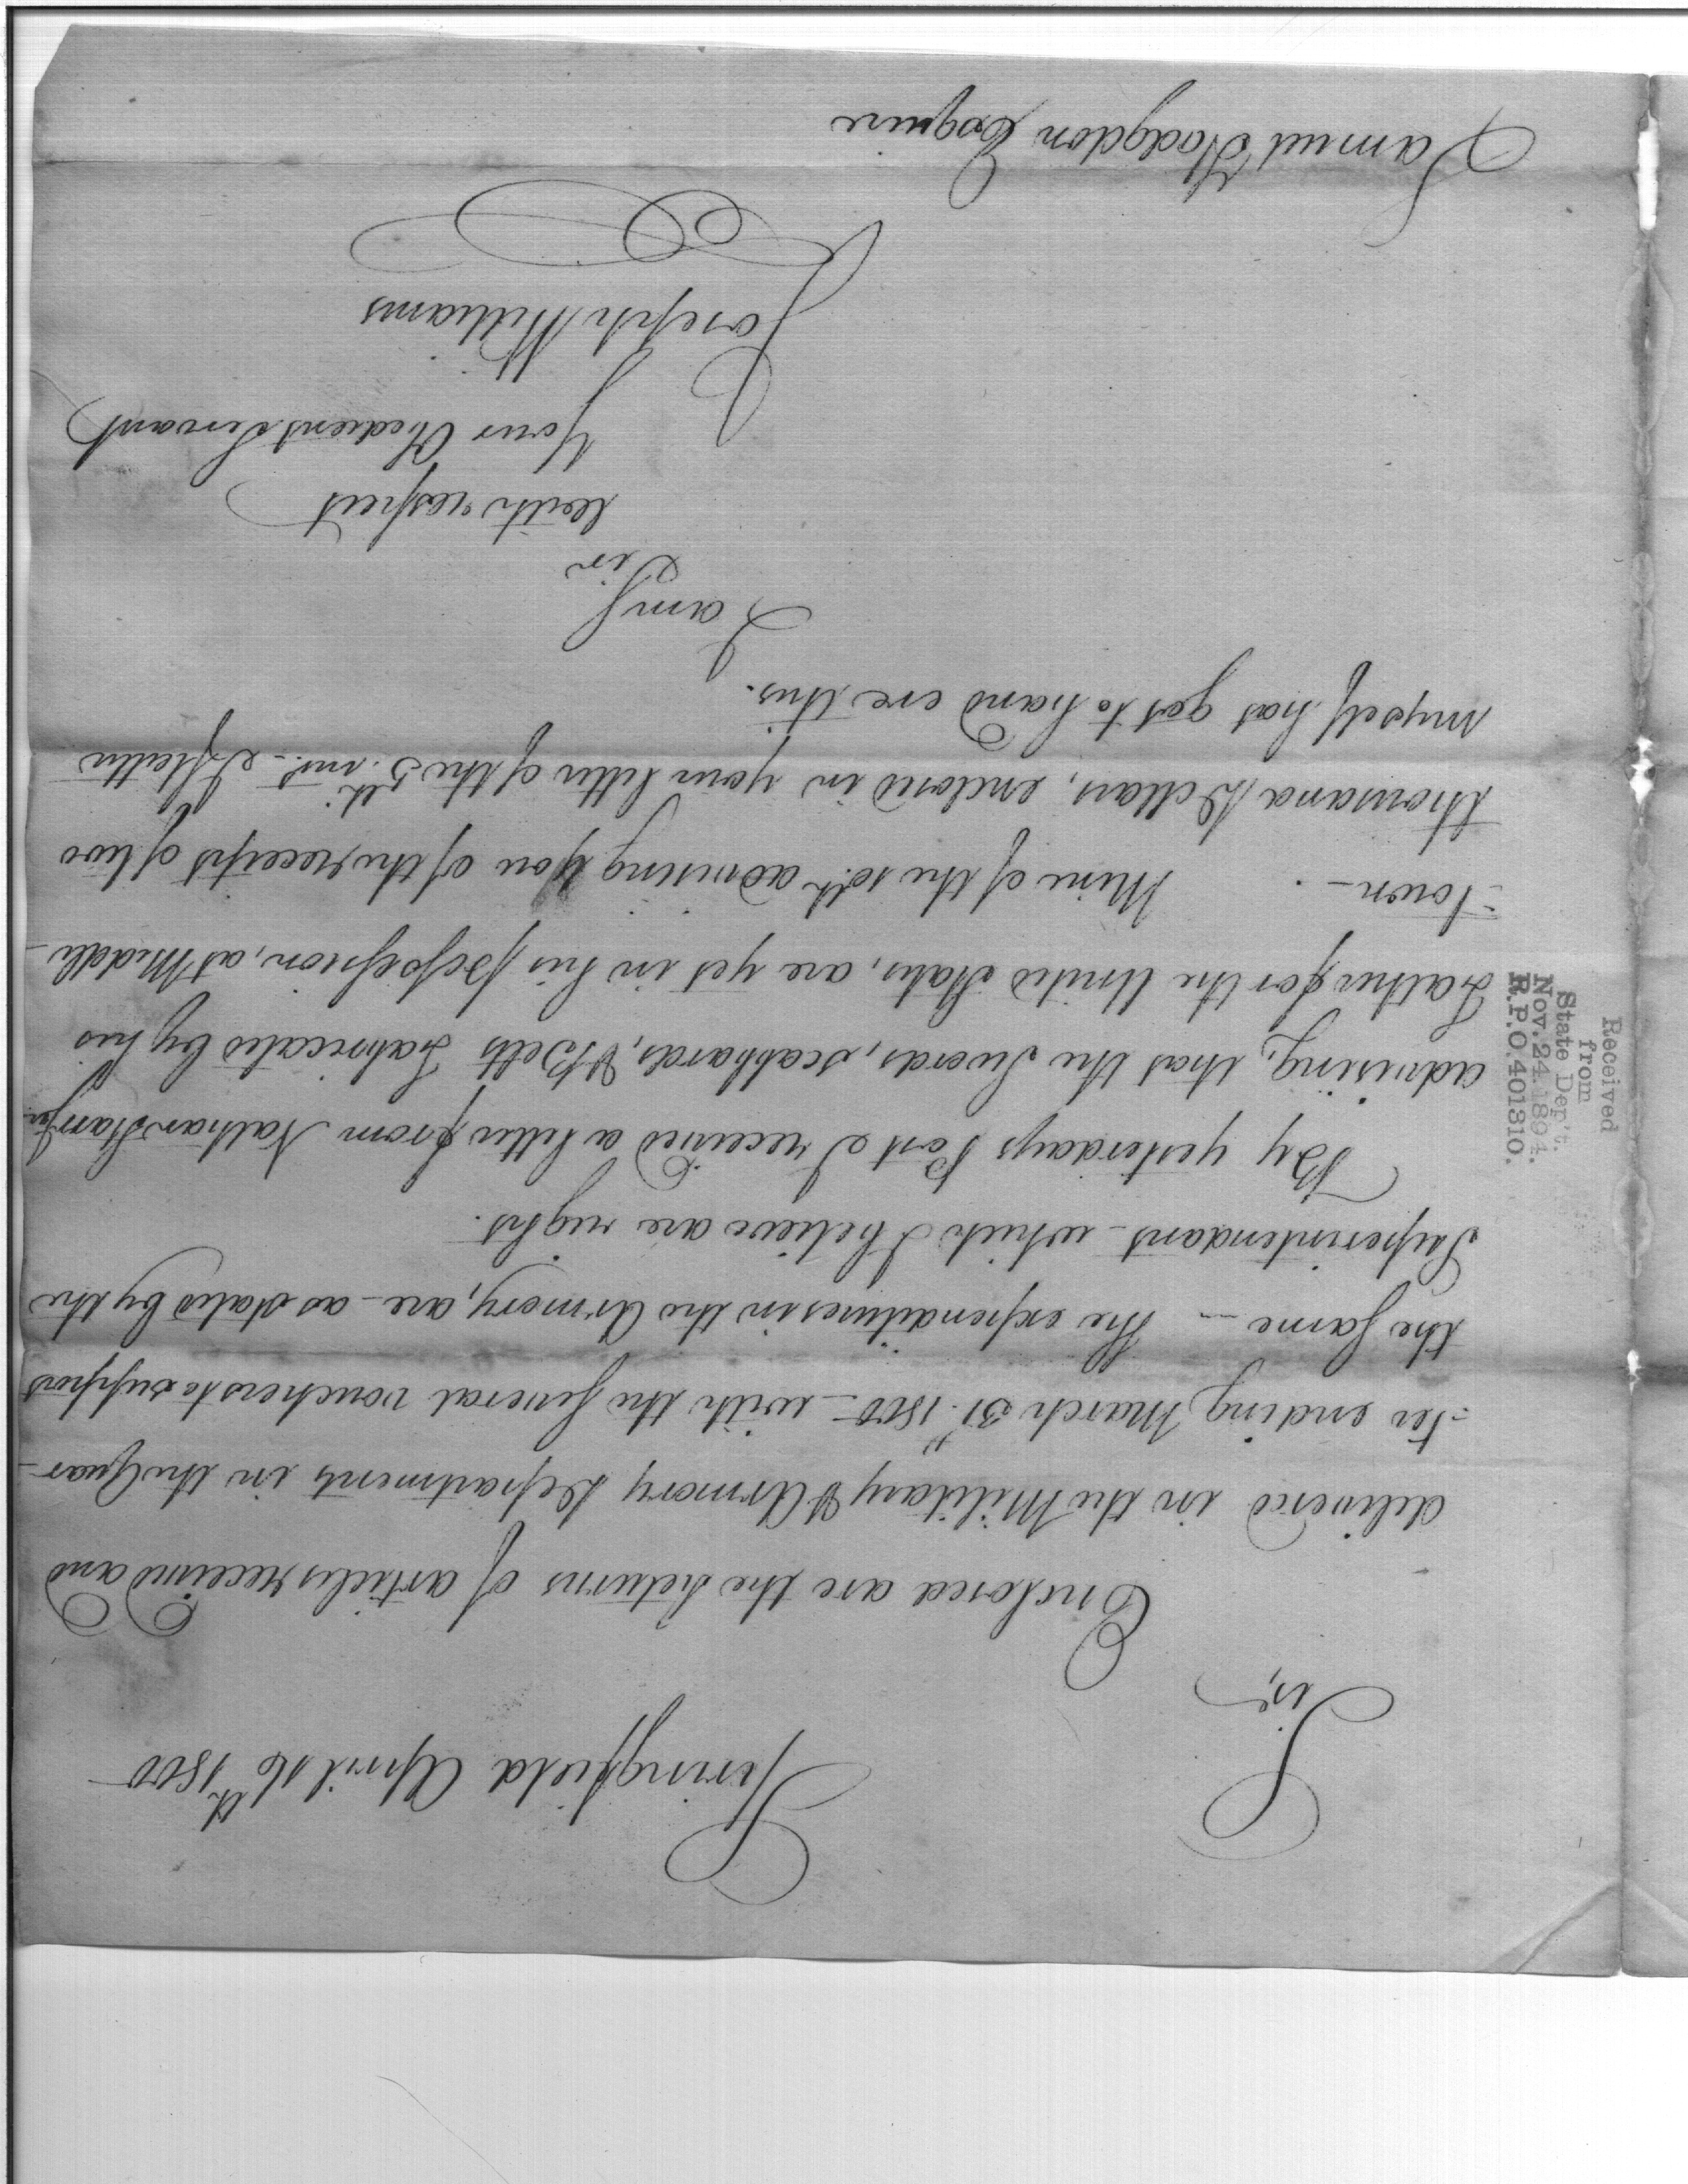 Springfield April 16th 1800
Sir,
Enclosed are the Returns of articles received and
delivered in the Military & Armory Department in the Quar-
=ter ending March 31st. 1800 - with the several vouchers to support
the same — The expenditures in the Armory, are - as stated by the
Superintendant - which I believe are right.
By yesterdays Post I received a letter from Nathan Starr Jnr.
advising, that the Swords, scabbards, & Belts fabricated by his
Father for the United States, are yet in his possession, at Middle-
=town - . Mine of the 10th. advising you of the receipt of two
thousand Dollars, enclosed in your letter of the 5th. inst.-
myself has got to hand ere this.
I am
Sir
with respect
Your Obedient Servant
Joseph Williams
Samuel Hodgdon Esquire
Received
from
State Dep't.
Nov. 24. 1894.
R.P.O. 401310.